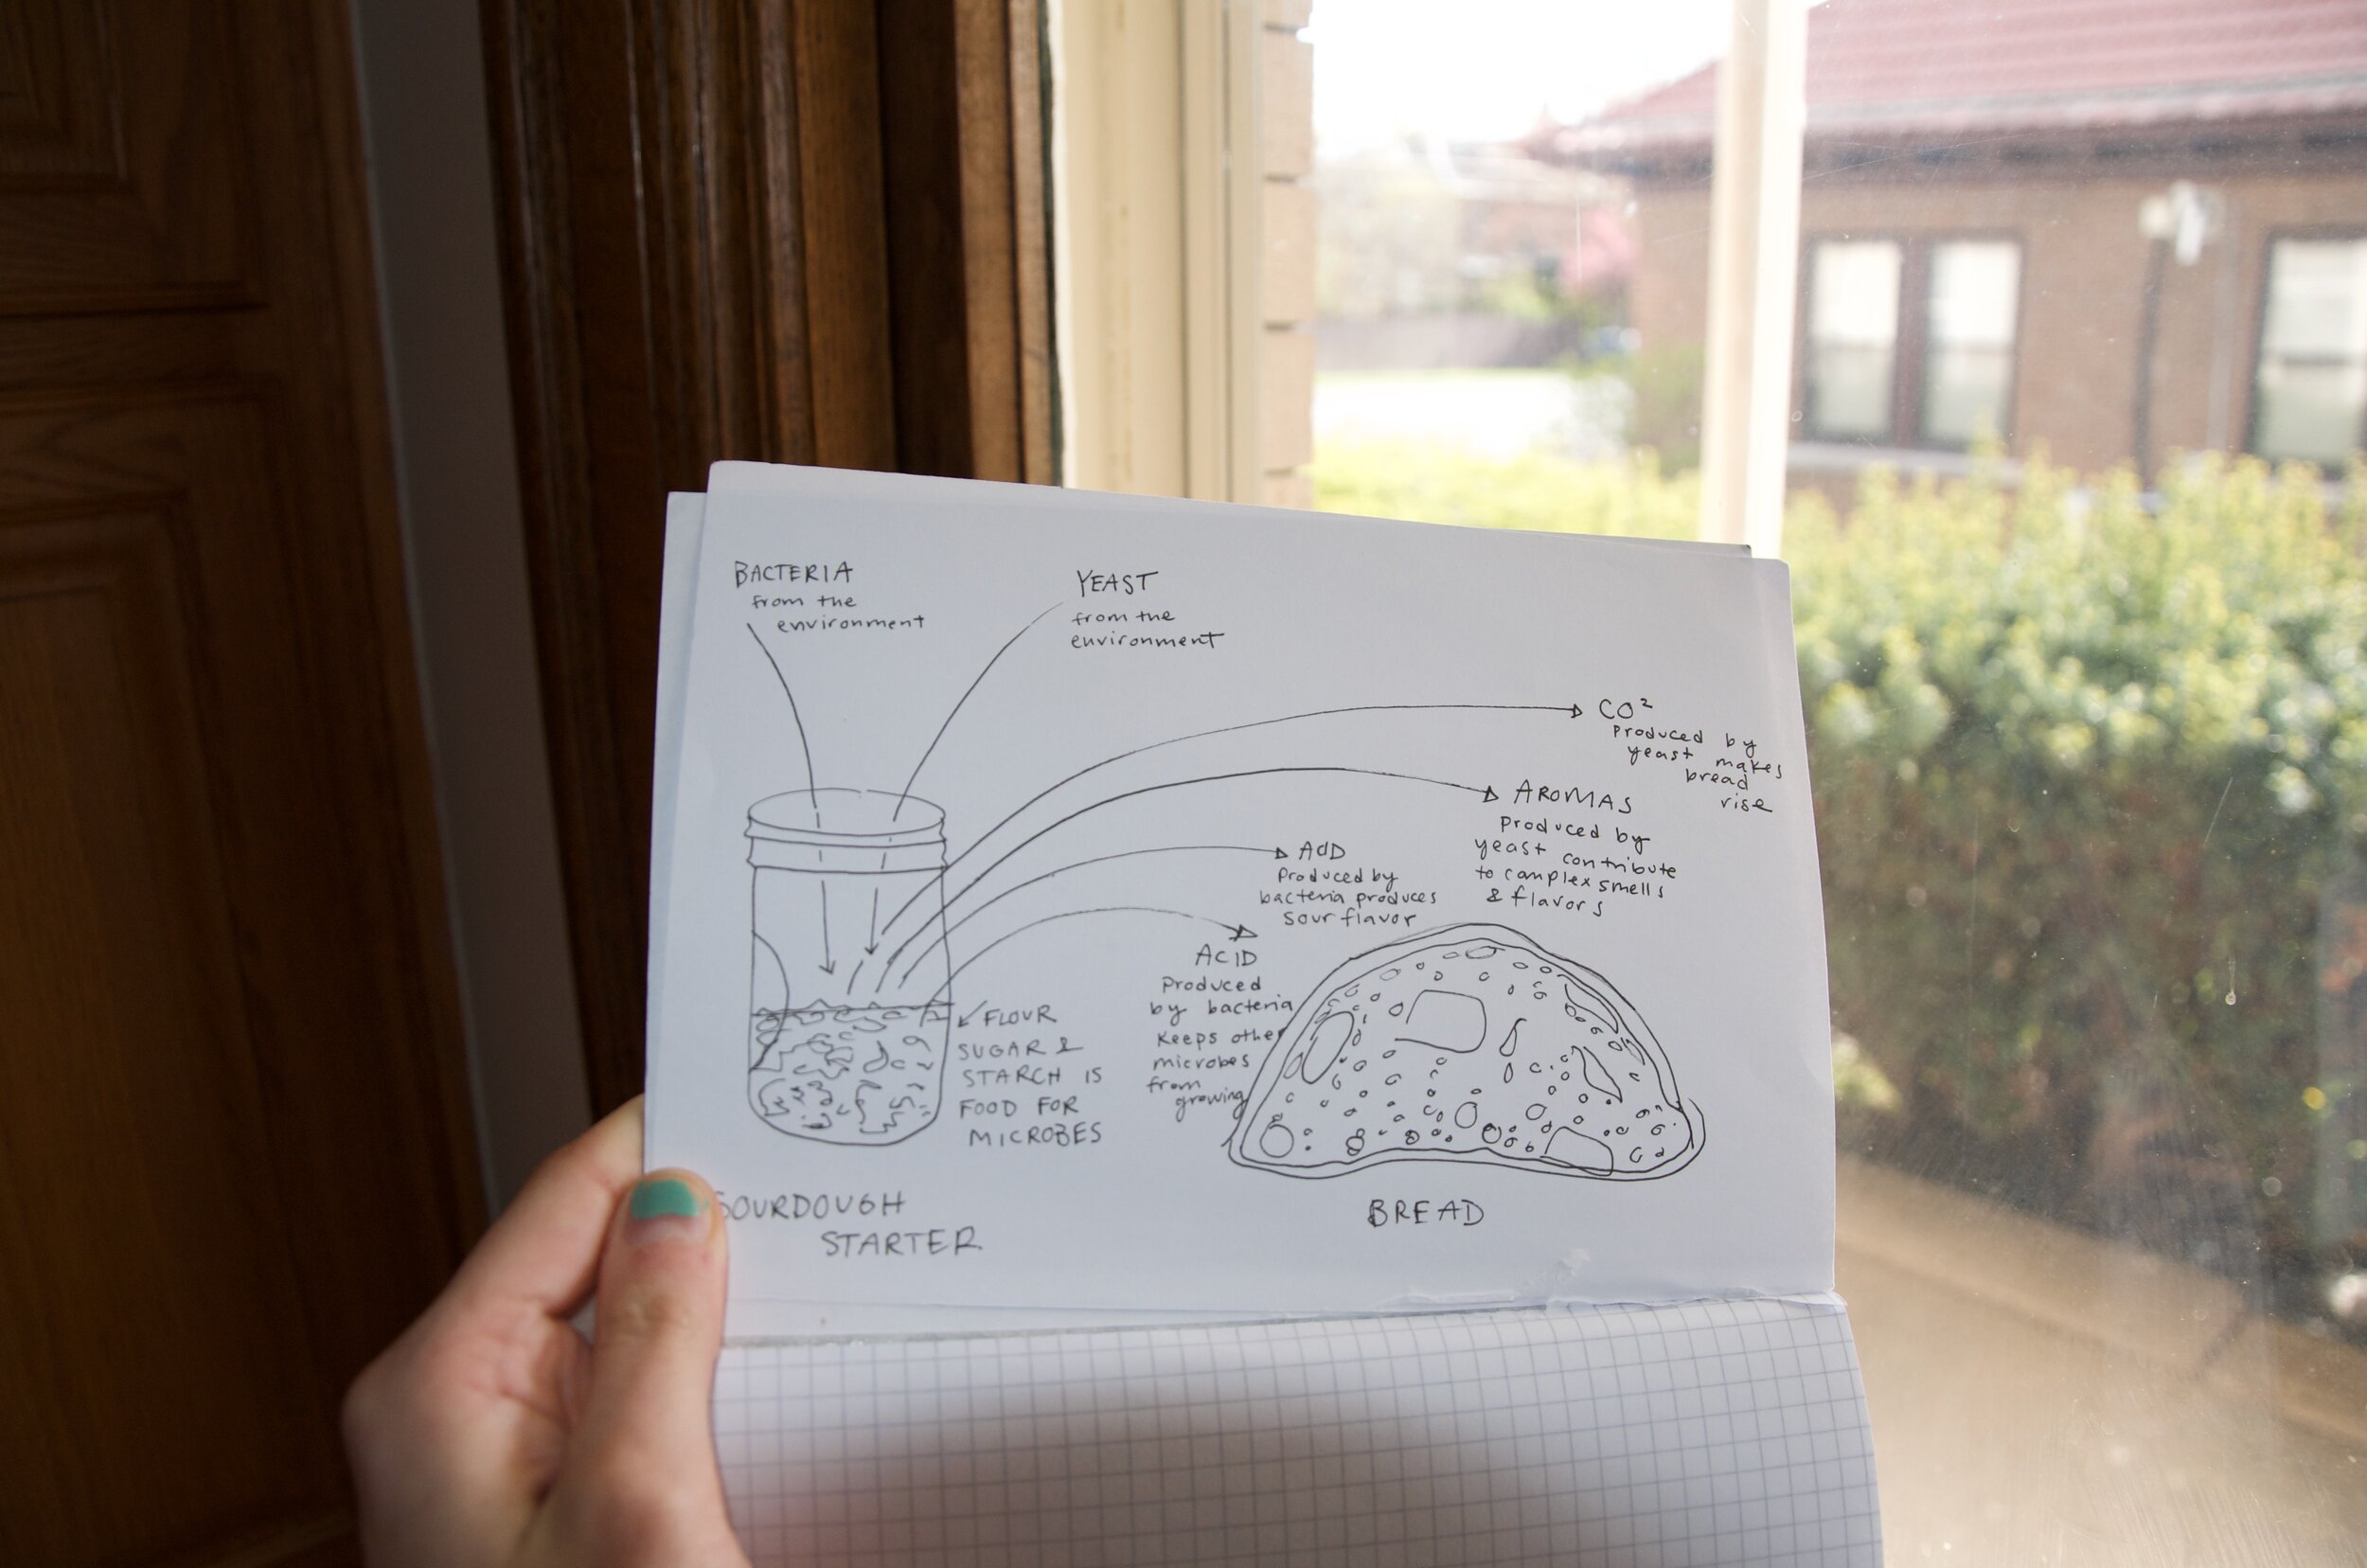 BACTERIA
from the
environment
YEAST
from the
environment
CO²
Produced by
yeast makes
bread
rise
AROMAS
Produced by
yeast contribute
to complex smells
& flavors
ACID
Produced by
bacteria produces
sour flavor
ACID
Produced
by bacteria
Keeps other
microbes
from
growing
FLOUR
SUGAR &
STARCH IS
FOOD FOR
MICROBES
SOURDOUGH
STARTER
BREAD